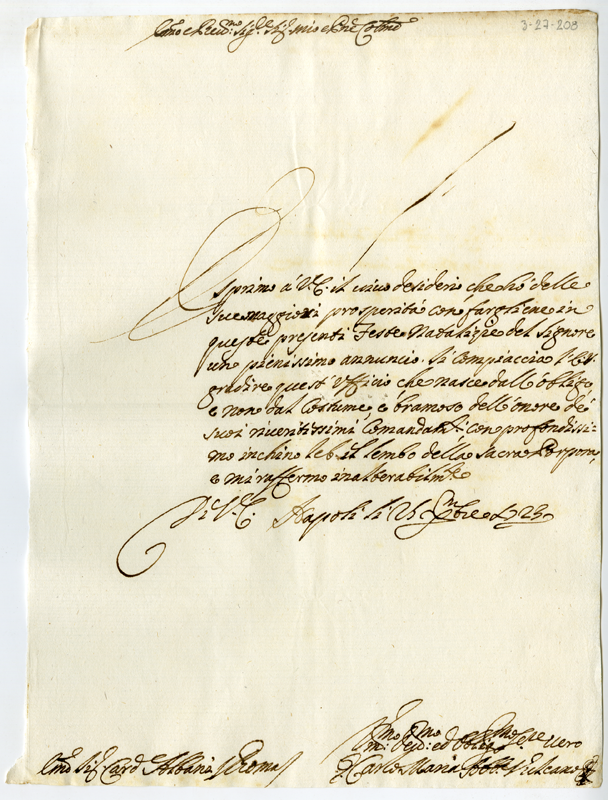 3-27-203
Em̃o e Rev.mo Sig.r Sig.r mio e Pñe Col.mo
Esprimo á V.E. il vivo desiderio che hò delle
sue maggiori prosperità con fargliene in
queste presenti Feste Natalizie del Signore
un pienissimo annuncio. Si compiaccia l'E.V.
gradire quest'Ufficio che nasce dall'obligo
e non dal costume, e bramoso dell'onore de'
suoi riveritissimi Comandam.ti con profondissi-
mo inchino le b. il lembo della Sacra Porpora,
e mi raffermo inalterabilm.te
Di V.E. Napoli li
Em̃o Sig.r Card. Albani Roma
ed Oblig.mo Se Vero
Carlo Maria Vulcano